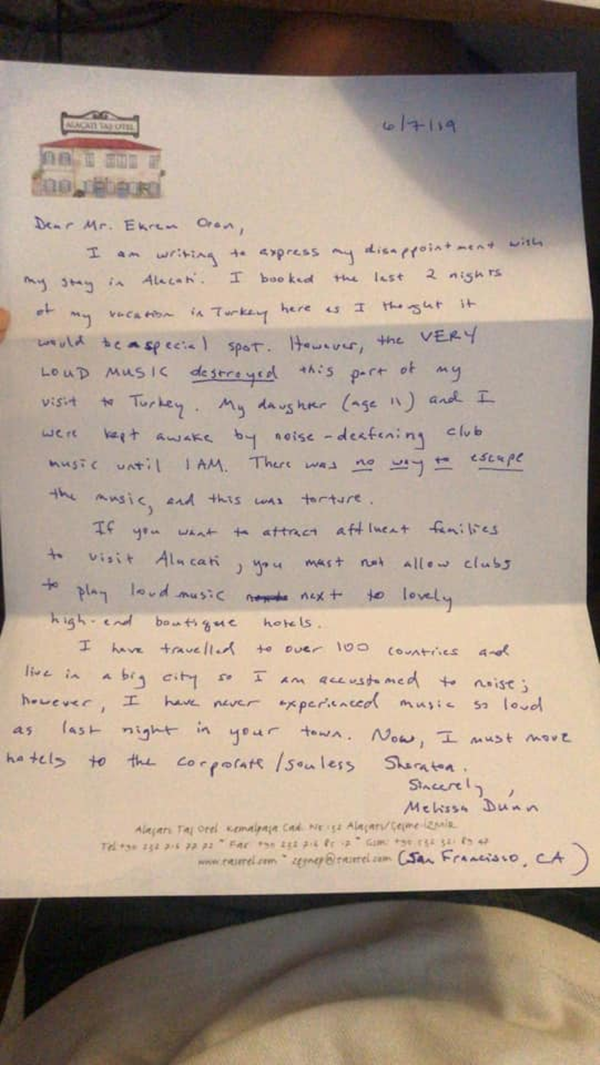 ALAÇATI TAŞ OTEL
6/7/19
Dear Mr. Ekrem Oran,
I am writing to express my disappointment with
my stay in Alacati. I booked the last 2 nights
of my vacation in Turkey here as I thought it
would be a special spot. However, the VERY
LOUD MUSIC destroyed this part of my
visit to Turkey. My daughter (age 11) and I
were kept awake by noise-deafening club
music until 1 AM. There was no way to escape
the music, and this was torture.
If you want to attract affluent families
to visit Alacati, you must not allow clubs
to play loud music next to lovely
high-end boutique hotels.
I have travelled to over 100 countries and
live in a big city so I am accustomed to noise;
however, I have never experienced music so loud
as last night in your town. Now, I must move
hotels to the corporate/souless Sheraton.
Sincerely,
Melissa Dunn
Alaçatı Taş Otel Kemalpaşa Cad. No:132 Alaçatı/Çeşme-İZMİR
Tel +90 232 716 77 72 * Fax +90 232 716 85 12 * Gsm:
www.tasotel.com * zeynep@tasotel.com (San Francisco, CA)